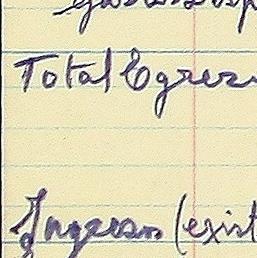 Total Egress
Ingress (exist